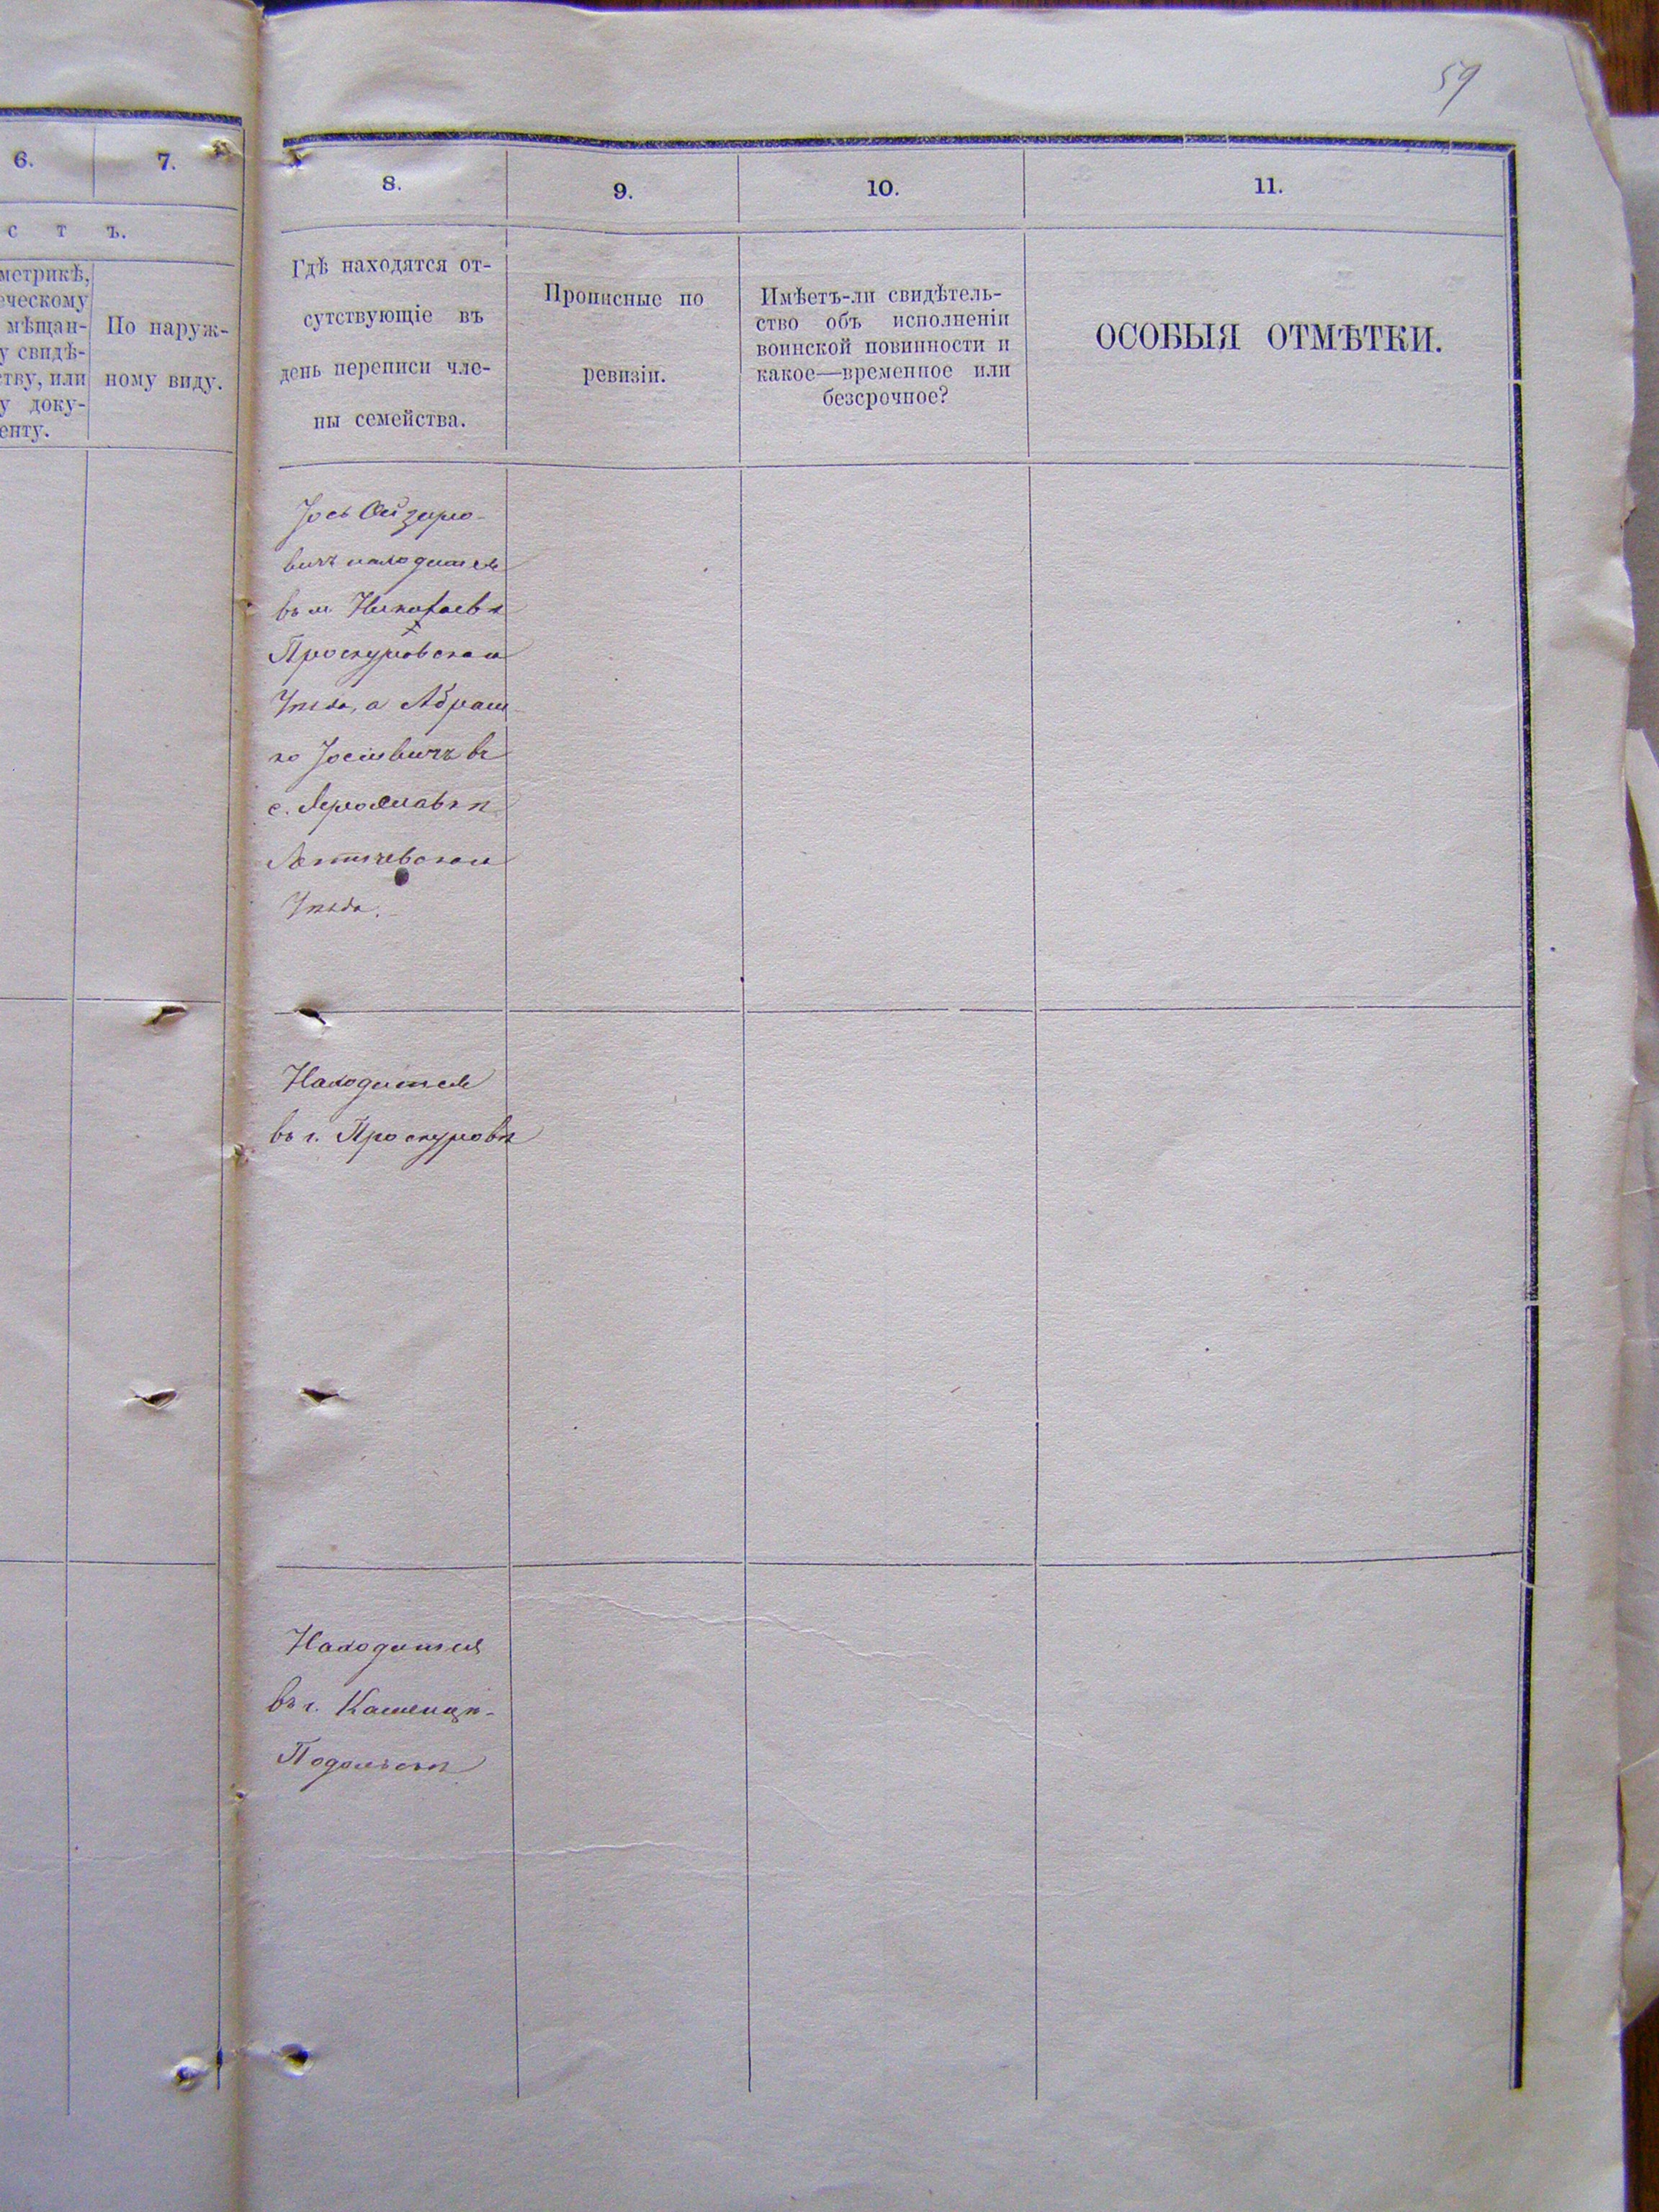 59
6.
7.
с т ъ.
метрикѣ,
ческому
мѣщан-
у свидѣ-
ству, или
у доку-
енту.
По наруж-
ному виду.
8.
9.
10.
11.
Гдѣ находятся от-
сутствующіе въ
день переписи чле-
ны семейства.
Прописные по
ревизіи.
Имѣетъ-ли свидѣтель-
ство объ исполненіи
воинской повинности и
какое—временное или
безсрочное?
ОСОБЫЯ ОТМѢТКИ.
Іось Ойзеро-
вичъ находится
въ м. Николаевѣ
Проскуровскаго
Уѣзда, а Абраш
ко Іосіевичъ въ
с. Ярославкѣ
Летичевскаго
Уѣзда.
Находится
въ г. Проскуровѣ
Находится
въ г. Каменцѣ-
Подольскѣ